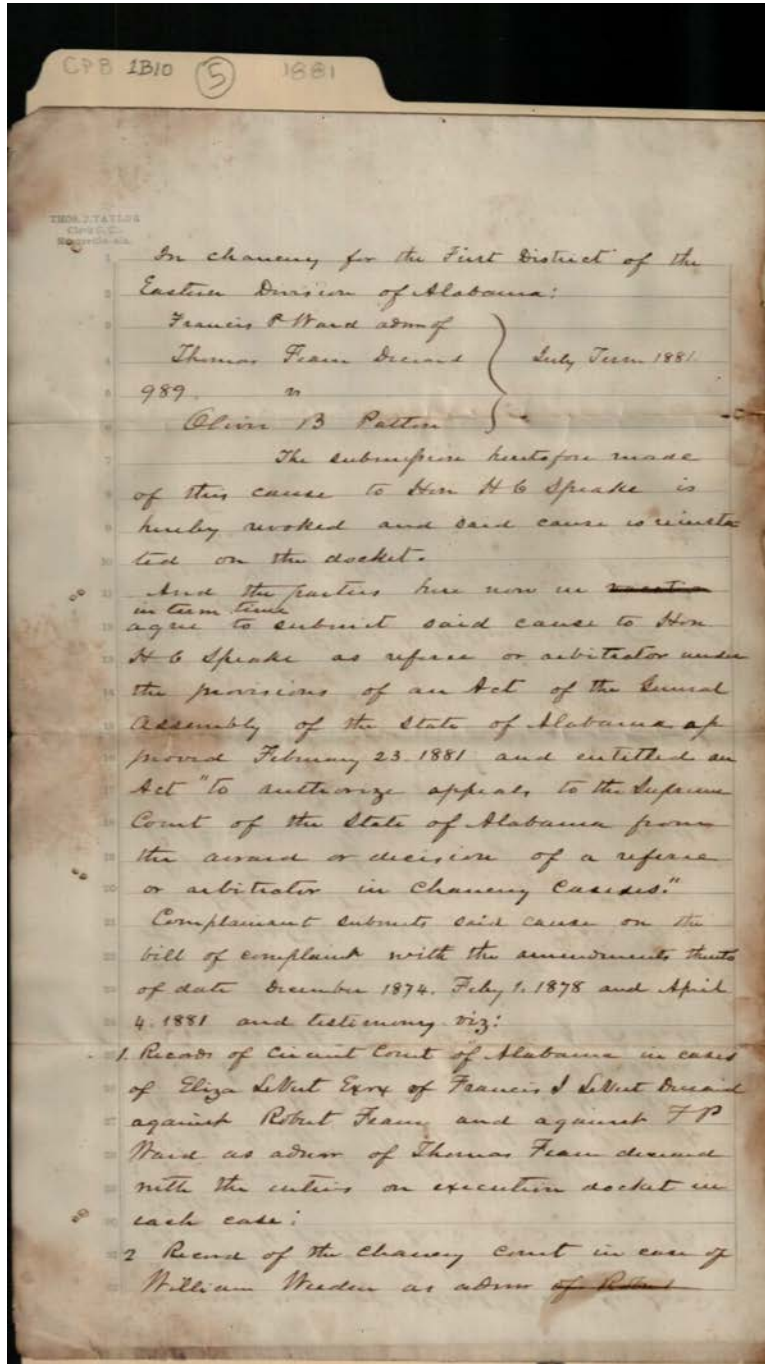 CPB 1B10 5 1881
THOS. J. TAYLOR
Clerk C. C.
Huntsville Ala.
In chancery for the First District of the
Eastern Division of Alabama:
Francis P Ward admr of
Thomas Fearn Deceased
July Term 1881
989. vs
Oliver B Patton
The submission heretofore made
of this cause to Hon H C Speake is
hereby revoked and said cause is reinsta
ted on the docket.
And the parties here now in vacation
in term time
agree to submit said cause to Hon
H C Speake as referee or arbitrator under
the provisions of an Act of the General
Assembly of the State of Alabama ap
proved February 23. 1881 and entitled an
Act "to authorize appeals to the Supreme
Court of the State of Alabama from
the award or decision of a referee
or arbitrator in Chancery Casses."
Complainant submits said cause on the
bill of complaint with the amendments thereto
of date December 1874. Feby 1. 1878 and April
4. 1881 and testimony viz:
1. Records of Circuit Court of Alabama in cases
of Eliza LeVert Exrx of Francis J LeVert Deceased
against Robert Fearn and against F P
Ward as admr of Thomas Fearn deceased
with the entries on execution docket in
each case:
2 Record of the Chancery Court in case of
William Weeden as admr of Robert